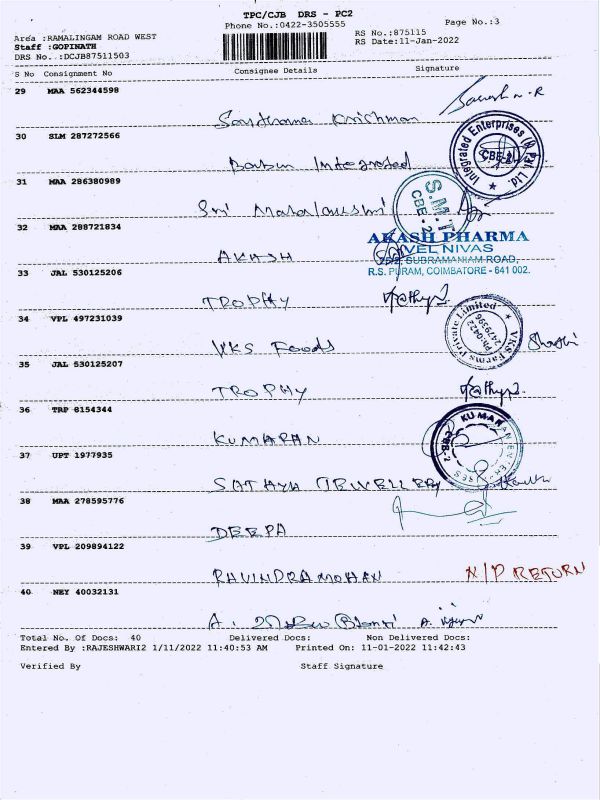 TPC/CJB DRS - PC2
Phone No.:0422-3505555
Page No.:3
Area :RAMALINGAM ROAD WEST
Staff :GOPINATH
DRS No. :DCJB87511503
RS No.:875115
RS Date:11-Jan-2022
S No Consignment No Consignee Details Signature
29 MAA 562344598
Krishnan
30 SLM 287272566
Babu Integrated
Integrated Enterprises
CBE-2
31 MAA 286380989
Sri Mahalakshmi
S.M.T
CBE-2
32 MAA 288721834
AKASH
AKASH PHARMA
VEL NIVAS
SUBRAMANIAM ROAD,
R.S. PURAM, COIMBATORE - 641 002.
33 JAL 530125206
TROPHY
34 VPL 497231039
VKS Foods
VKS Farms Private Limited
Ph:0422
2479396
Shanthi
35 JAL 530125207
TROPHY
36 TRP 8154344
KUMARAN
KUMARAN ENTERPRISES
CBE-2
37 UPT 1977935
SATHYA JEWELLERY
38 MAA 278595776
DEEPA
39 VPL 209894122
RAVINDRAMOHAN N/P RETURN
40 NEY 40032131
Total No. Of Docs: 40 Delivered Docs: Non Delivered Docs:
Entered By :RAJESHWARI2 1/11/2022 11:40:53 AM Printed On: 11-01-2022 11:42:43
Verified By Staff Signature